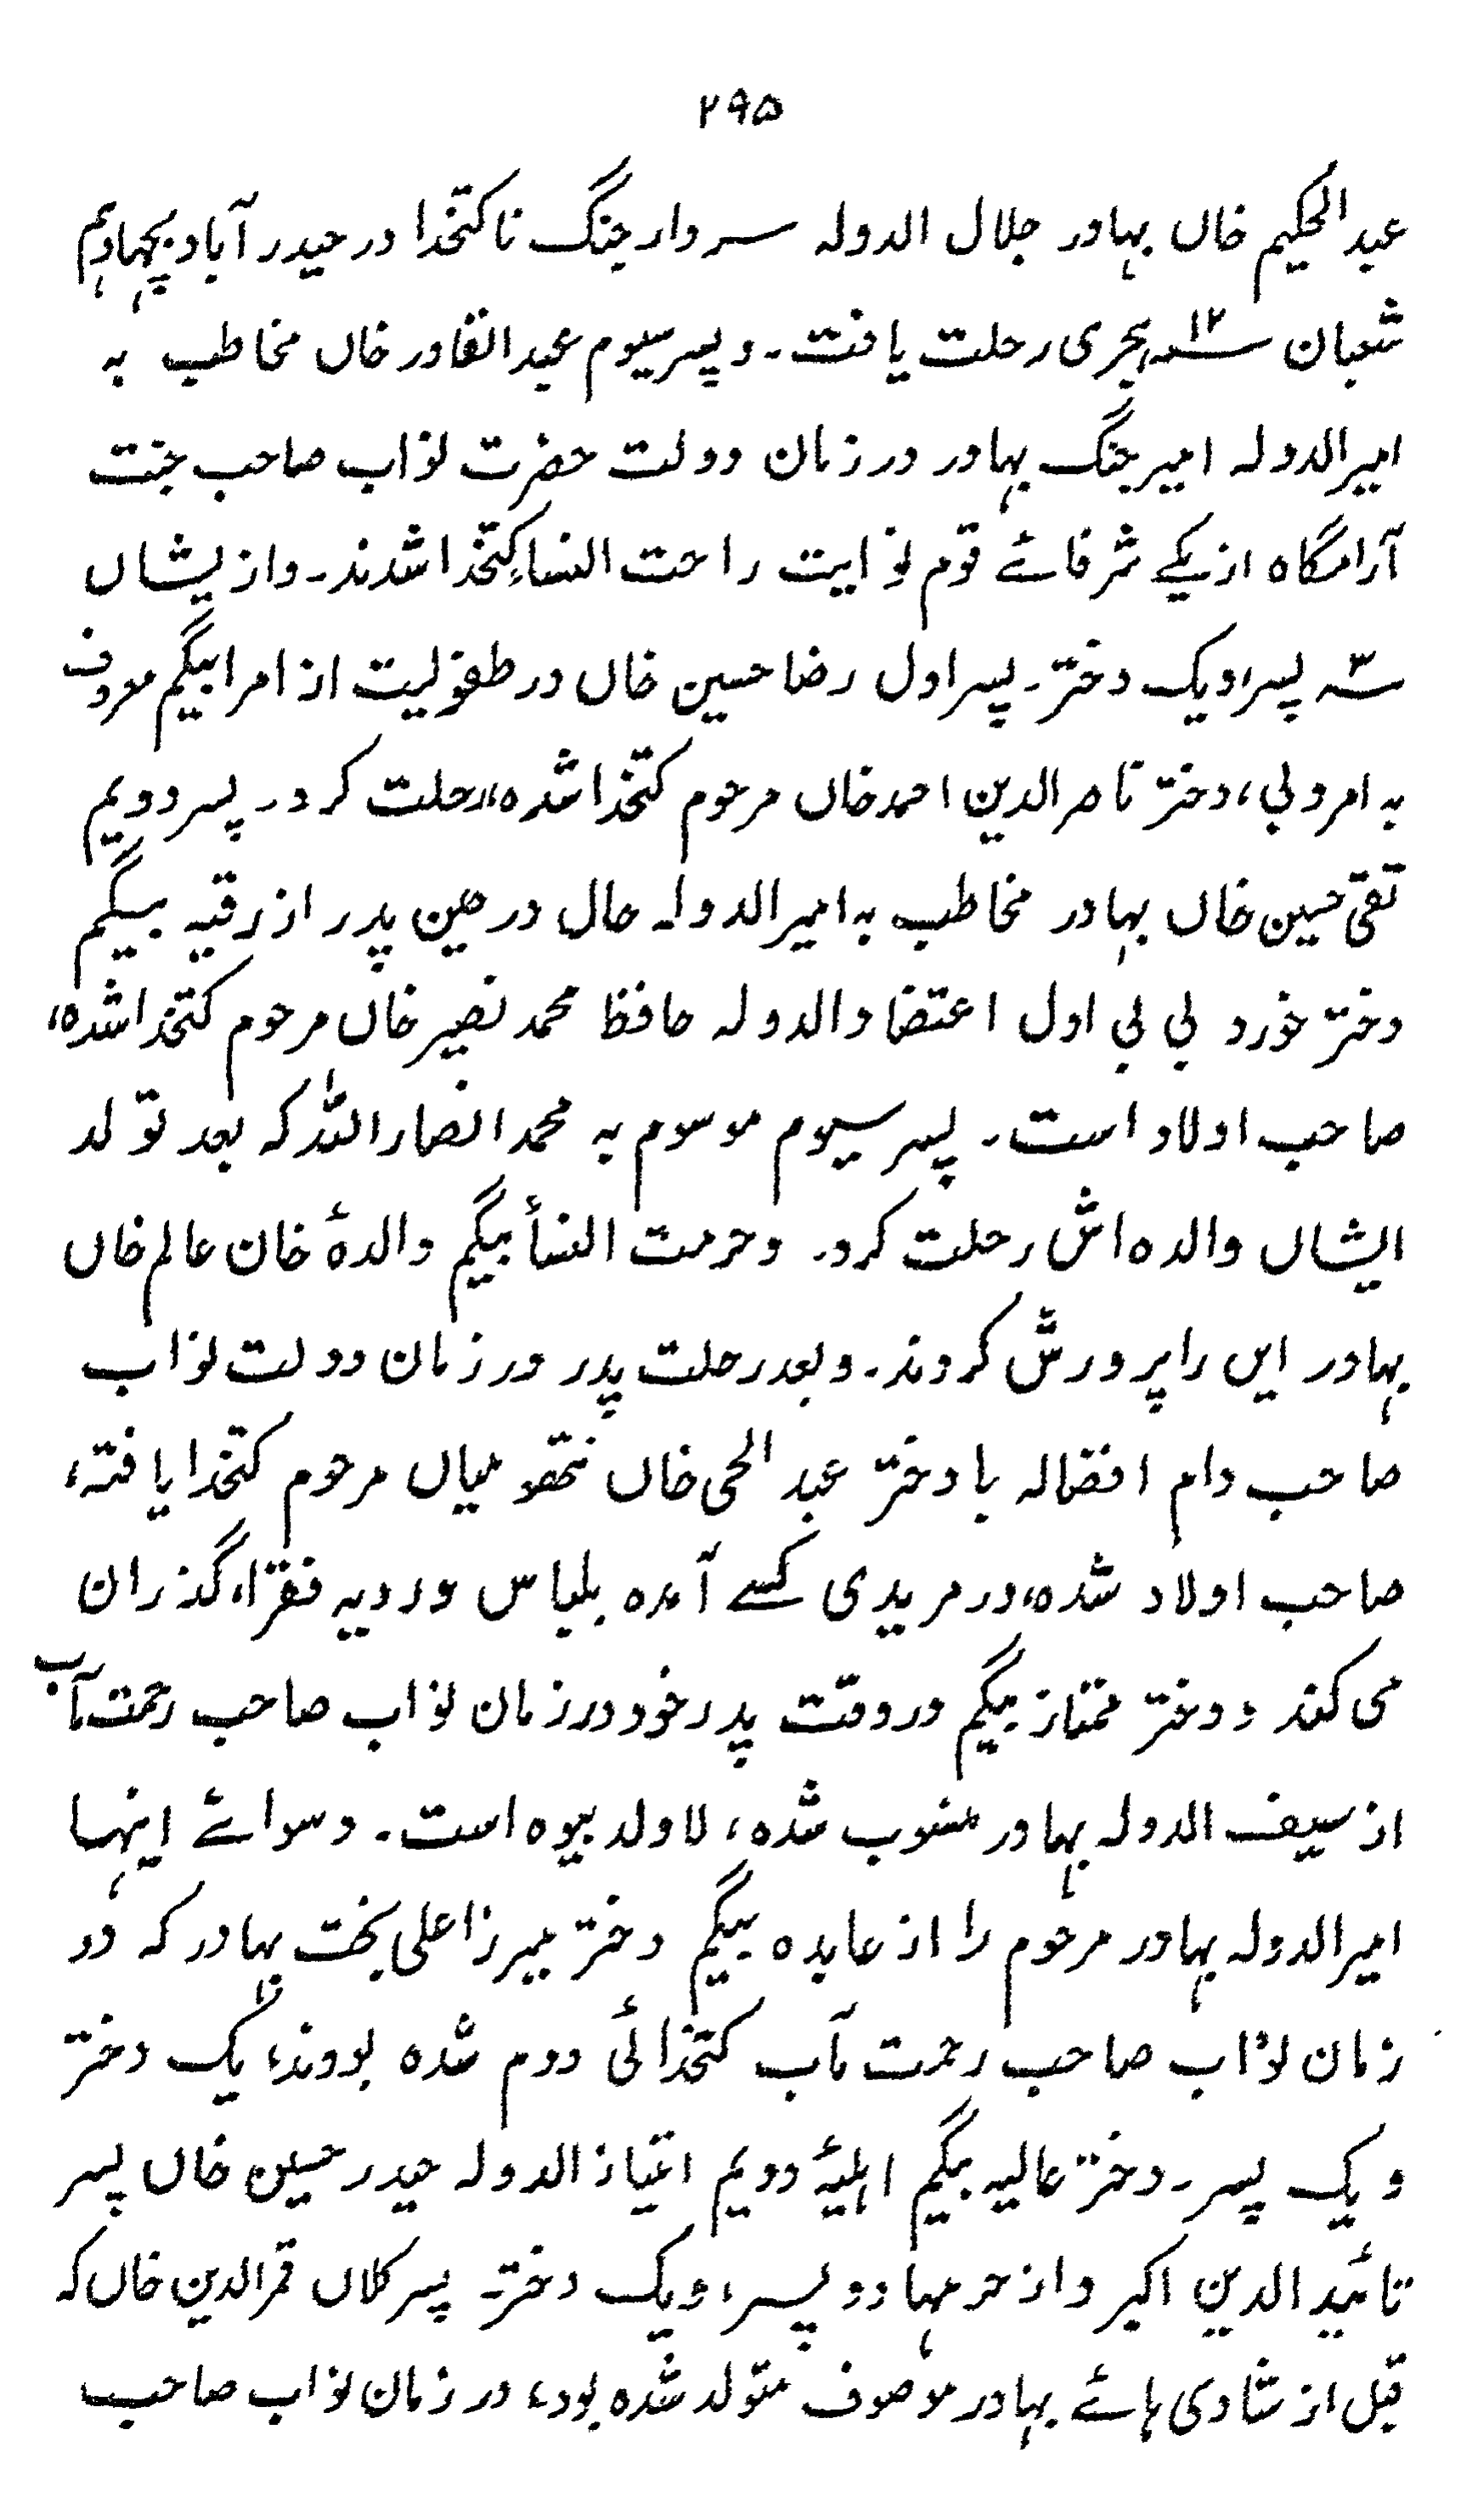 ۲۹۵
عبدالحکیم خاں بہادر جلال الدولہ سردار جنگ ناکتخدا در حیدرآباد بچہاردہم
شعبان ۱۲ سنہ ہجری رحلت یافت۔ و پسر سیوم عبدالغادر خاں مخاطب بہ
امیرالدولہ امیر جنگ بہادر در زمان دولت حضرت نواب صاحب جنت
آرامگاہ از یکے شرفائے قوم نوایت راحت النساء کتخدا شدند۔ و از یشاں
سہ پسر، و یک دختر۔ پسر اول رضا حسین خاں در طفولیت از امرا بیگم معروف
بہ امرو بی، دختر ناصرالدین احمد خاں مرحوم کتخدا شدہ، رحلت کرد۔ پسر دویم
تقی حسین خاں بہادر مخاطب بہ امیرالدولہ حال در حین پدر از رقیہ بیگم
دختر خورد بی بی اول اعتضاد الدولہ حافظ محمد نصیر خاں مرحوم کتخدا شدہ،
صاحب اولاد است۔ پسر سیوم موسوم بہ محمد انصار اللہ کہ بعد تولد
ایشاں والدہ اش رحلت کرد۔ و حرمت النسأ بیگم والدۂ خان عالم خاں
بہادر ایں را پرورش کردند۔ و بعد رحلت پدر در زمان دولت نواب
صاحب دام افضالہ با دختر عبدالحی خاں نتھو میاں مرحوم کتخدا یافتہ،
صاحب اولاد شدہ، در مریدی کسے آمدہ بلباس و رویہ فقرا، گذران
می کند و دختر ممتاز بیگم در وقت پدر خود در زمان نواب صاحب رحمت مآب
از سیف الدولہ بہادر منسوب شدہ، لاولد بیوہ است۔ و سوائے اینہا
امیرالدولہ بہادر مرحوم را از عابدہ بیگم دختر میرزا علی بخت بہادر کہ در
زمان نواب صاحب رحمت مآب کتخدائی دوم شدہ بودند، یک دختر
و یک پسر۔ دختر عالیہ بیگم اہلیۂ دویم امتیاز الدولہ حیدر حسین خاں پسر
تائید الدین اکبر و از حرمہا دو پسر، و یک دختر۔ پسر کلاں قمرالدین خاں کہ
قبل از شادی ہائے بہادر موصوف متولد شدہ بود، در زمان نواب صاحب